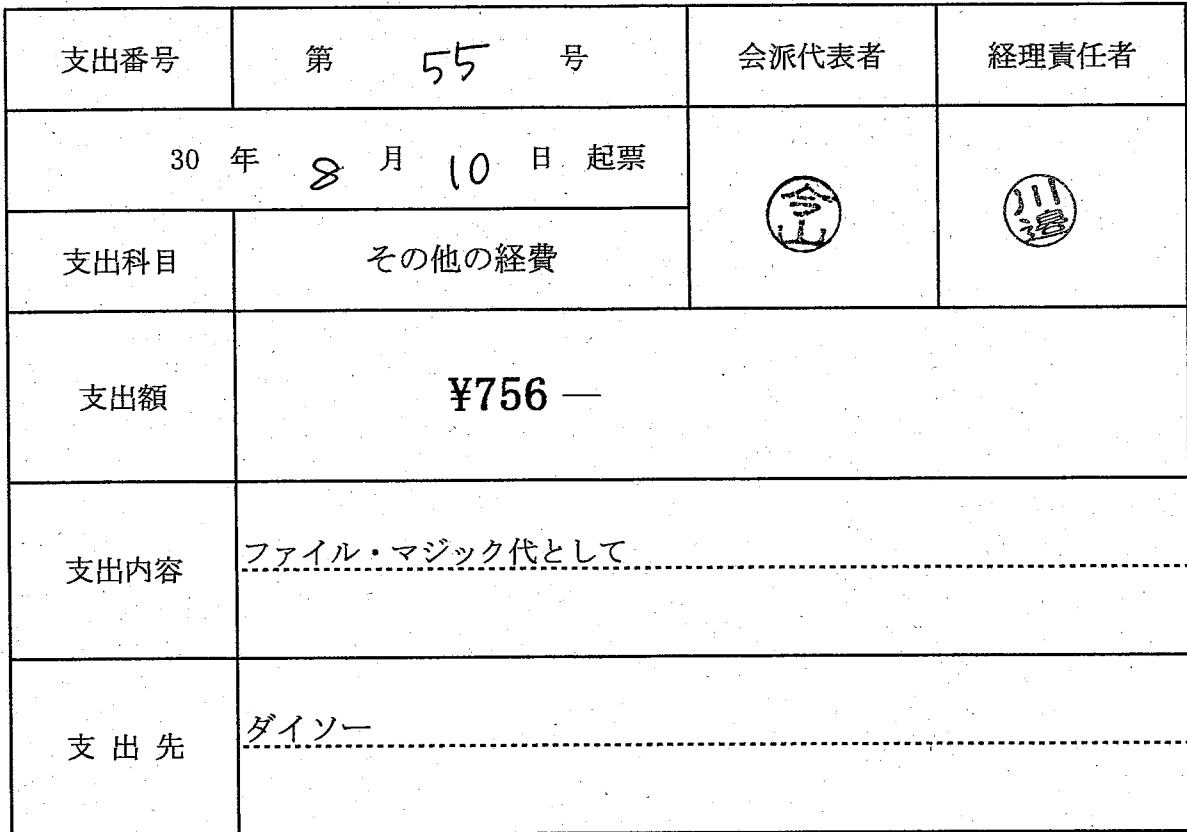 支出番号 第 55 号 会派代表者 経理責任者
30 年 8 月 10 日 起票
今山 川邉
支出科目 その他の経費
支出額 ¥756 —
支出内容 ファイル・マジック代として
支 出 先 ダイソー